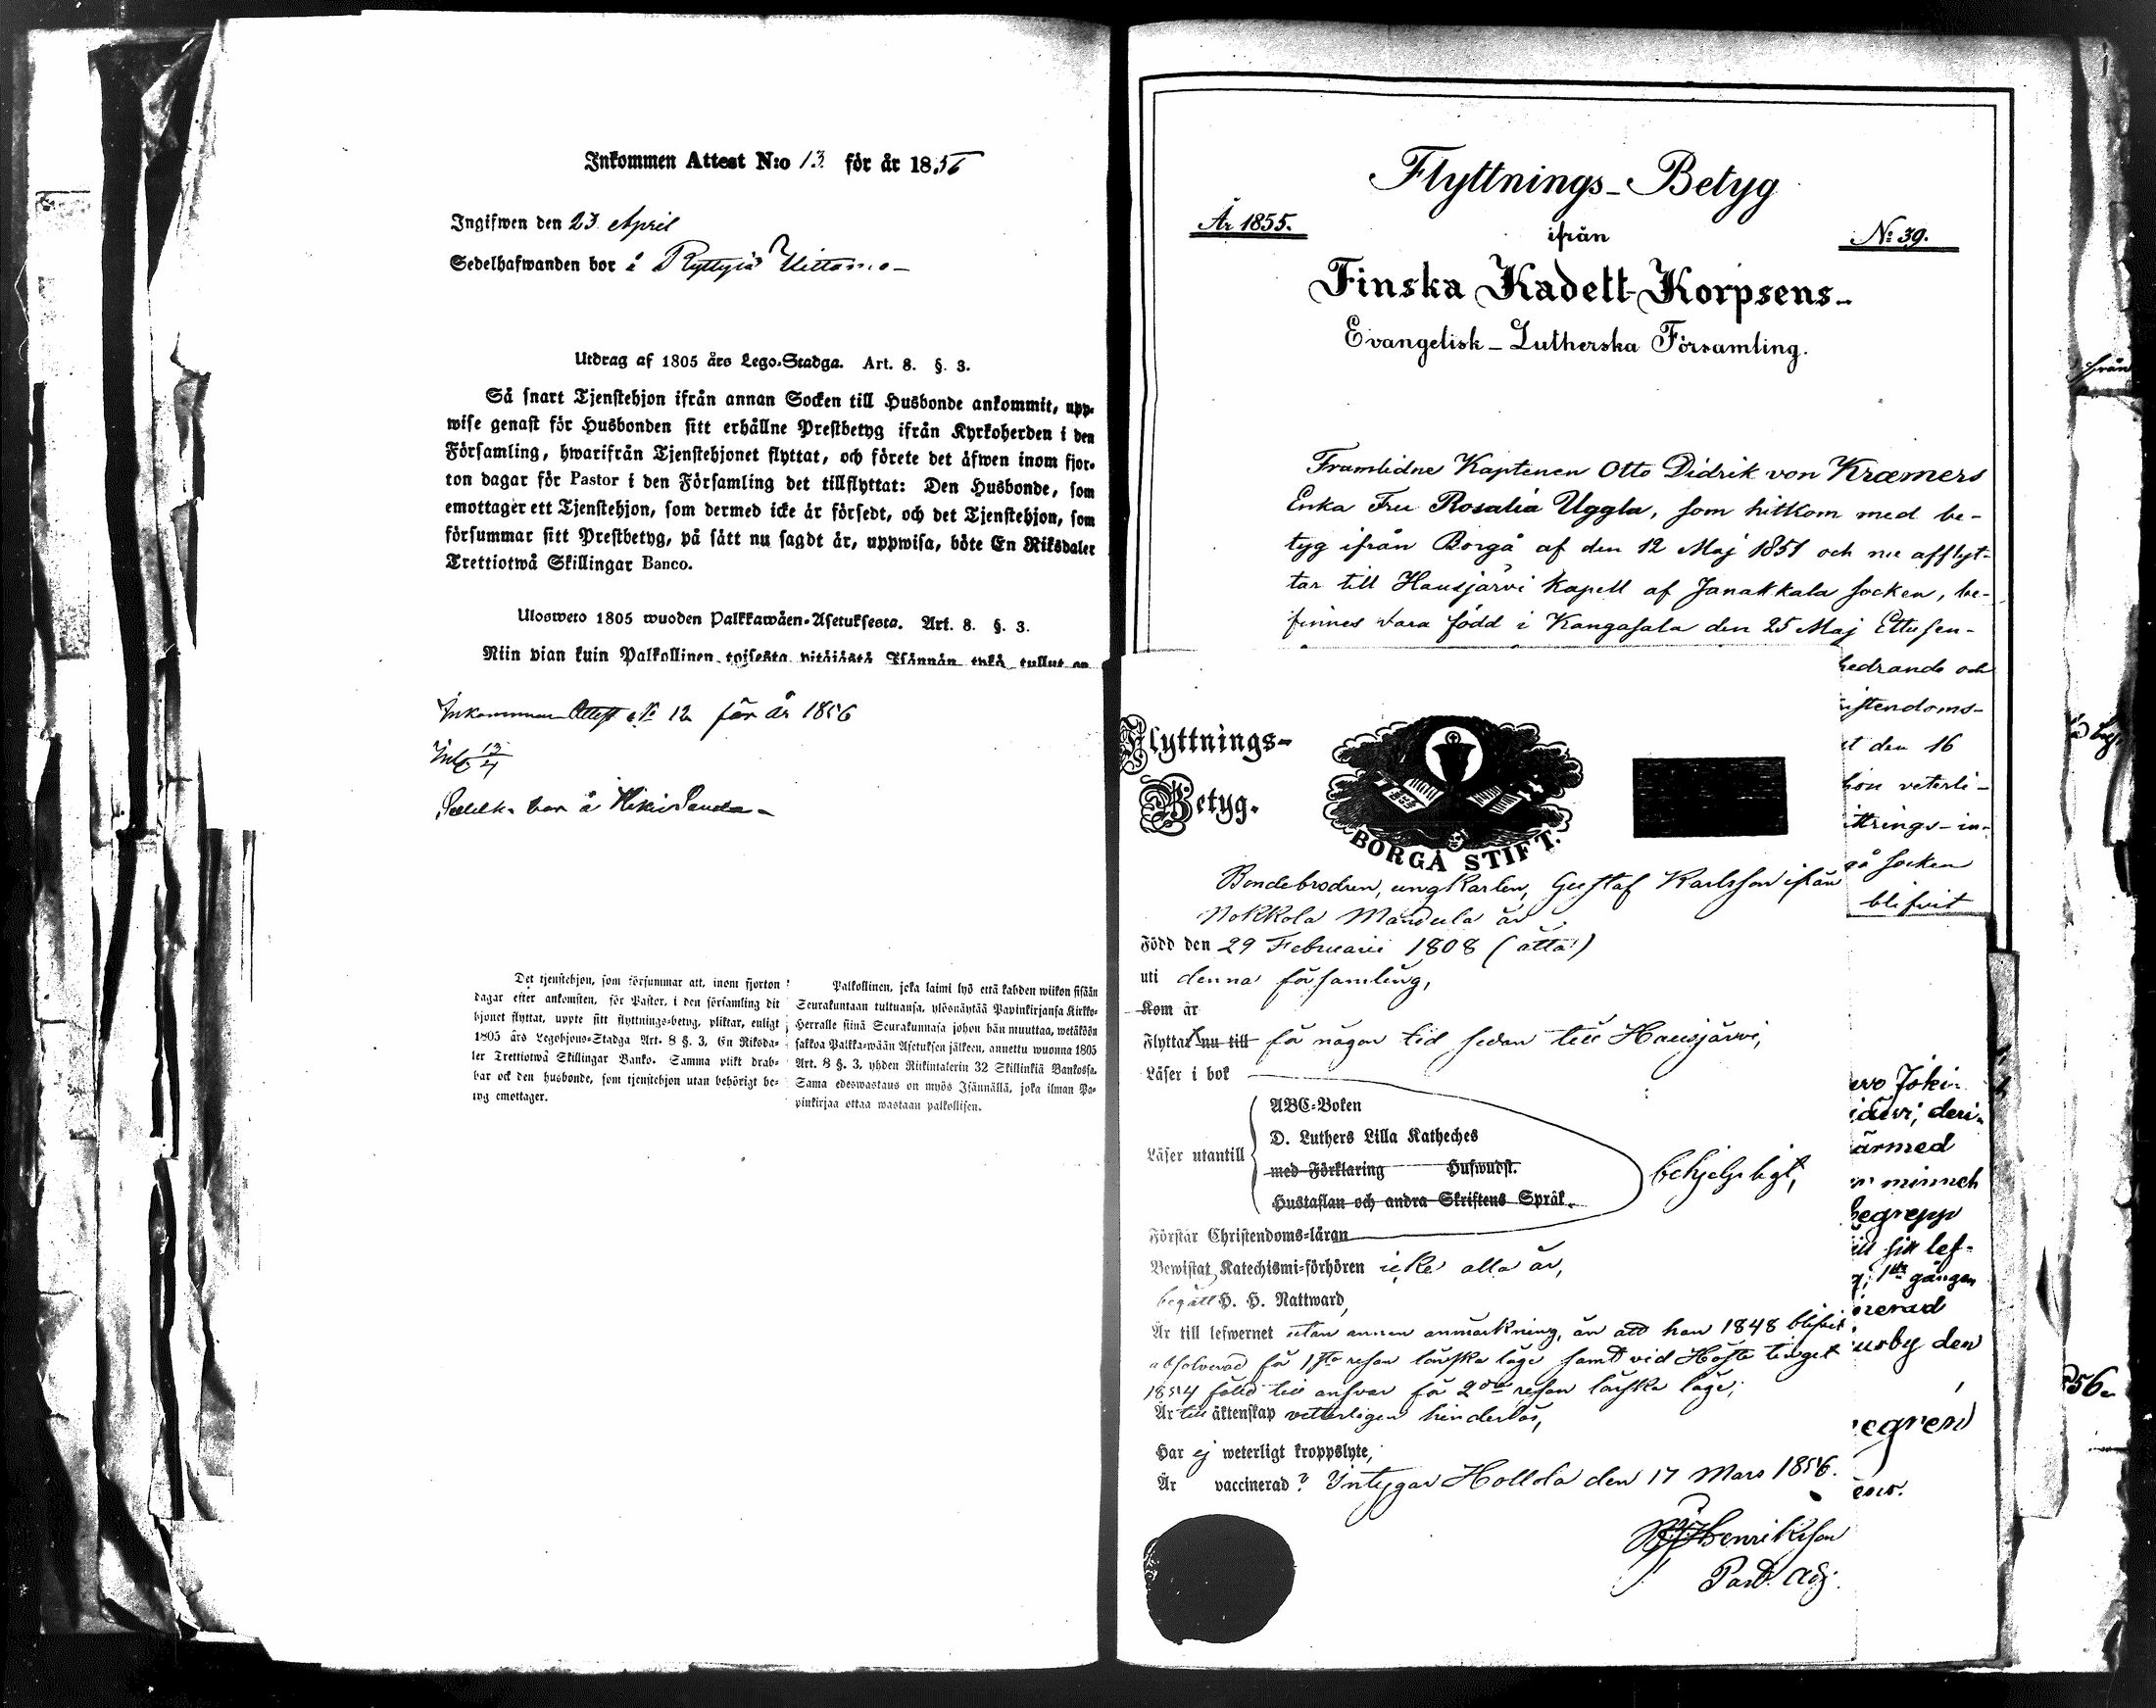 Inkommen Attest N:o 13 för år 1856
Ingifwen den 23 April
Sedelhafwanden bor å
Utdrag af 1805 års Lego-Stadga. Art. 8. §. 3.
Så snart Tjenstehjon ifrån annan Socken till Husbonde ankommit, upp-
wise genast för Husbonden sitt erhållne Prestbetyg ifrån Kyrkoherden i den
Församling, hwarifrån Tjenstehjonet flyttat, och förete det äfwen inom fjor-
ton dagar för Pastor i den Församling det tillflyttat: Den Husbonde, som
emottager ett Tjenstehjon, som dermed icke är försedt, och det Tjenstehjon, som
försummar sitt Prestbetyg, på sätt nu sagdt är, uppwisa, böte En Riksdaler
Trettiotwå Skillingar Banco.
Ulosweto 1805 wuoden Palkkawäen-Asetuksesta. Art. 8. §. 3.
Niin pian kuin Palkollinen toisesta pitäjästä Isännän tykö tullut on
Inkommen Attest No 12 för år 1856
Inl. 13/4
bor å
Det tjenstehjon, som försummar att, inom fjorton
dagar efter ankomsten, för Pastor, i den församling dit
hjonet flyttat, uppte sitt flyttnings-betyg, pliktar, enligt
1805 års Legohjons-Stadga Art. 8 §. 3, En Riksda-
ler Trettiotwå Skillingar Banko. Samma plikt drab-
bar ock den husbonde, som tjenstehjon utan behörigt be-
tyg emottager.
Palkollinen, joka laimi lyö että kahden wiikon sisään
Seurakuntaan tultuansa, ylösnäytää Papinkirjansa Kirkko-
Herralle siinä Seurakunnasa johon hän muuttaa, wetäköön
sakkoa Palkka-wään Asetuksen jälkeen, annettu wuonna 1805
Art. 8 §. 3, yhden Riikintalerin 32 Skillinkiä Bankossa.
Sama edeswastaus on myös Isännällä, joka ilman Pa-
pinkirjaa ottaa wastaan palkollisen.
Flyttnings-Betyg
År 1855.
ifrån
No 39.
Finska Kadett-Korpsens
Evangelisk-Lutherska Församling.
Framlidne Kaptenen Otto Didrik von Kræmers
Enka Fru Rosalia Uggla, som hitkom med be-
tyg ifrån Borgå af den 12 Maj 1851 och nu afflyt-
tar till Hausjärvi Kapell af Janakkala socken, be-
finnes vara född i Kangasala den 25 Maj Ettusen-
hedrande och
istendoms-
et den 16
hon veterli-
ittrings-in-
gå socken
blifvit
Flyttnings-
Betyg.
BORGÅ STIFT.
Bondebrodren, ungkarlen, Gustaf Karlsson ifrån
Nokkola Mandula är
Född den 29 Februarii 1808 (åtta)
uti denna församling,
Kom år
Flyttat nu till för någon tid sedan till Hausjärvi,
Läser i bok
Läser utantill
ABC-Boken
D. Luthers Lilla Katheches
med Förklaring Hufwudst.
Hustaflan och andra Skriftens Språk.
behjelpligt,
Förstår Christendoms-läran
Bewistat Katechismi-förhören icke alla år,
begått H. H. Nattward,
Är till lefwernet utan annan anmärkning, än att han 1848 blifvit
absolverad för 1sta resan lönska läge samt vid Höste tinget
1854 fälld till ansvar för 2dra resan lönska läge;
Är till äktenskap vetterligen hinderlös,
Har ej weterligt kroppslyte,
Är vaccinerad? Intygar Hollola den 17 Mars 1856.
Henriksson
Past. Adj.
ärmed
begrepp
till sitt lef-
1sta gången
usby den